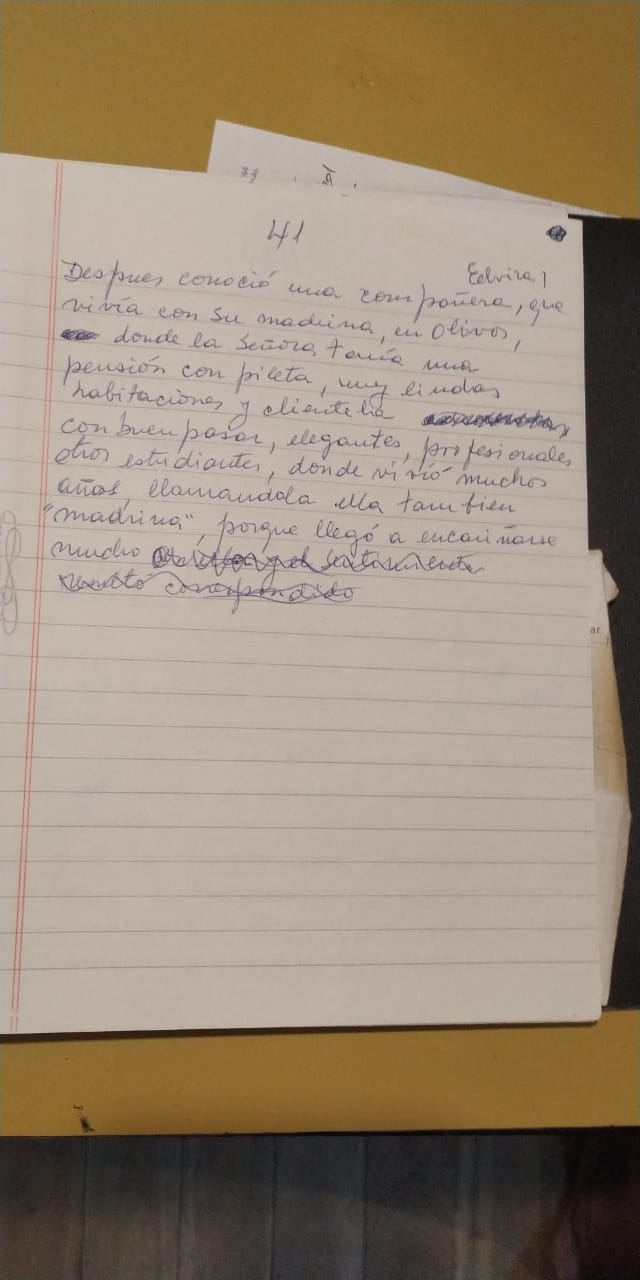 41
Edvira,
Despues conoció una compañera, que
vivía con su madrina, en Olivos,
donde la Señora, tenía una
pensión con pileta, muy lindas
habitaciones y clientela
con buen pasar, elegantes, profesionales
otros estudiantes, donde vivió muchos
años, llamandola ella tambien
"madrina", porque llegó a encariñarse
mucho
correspondido